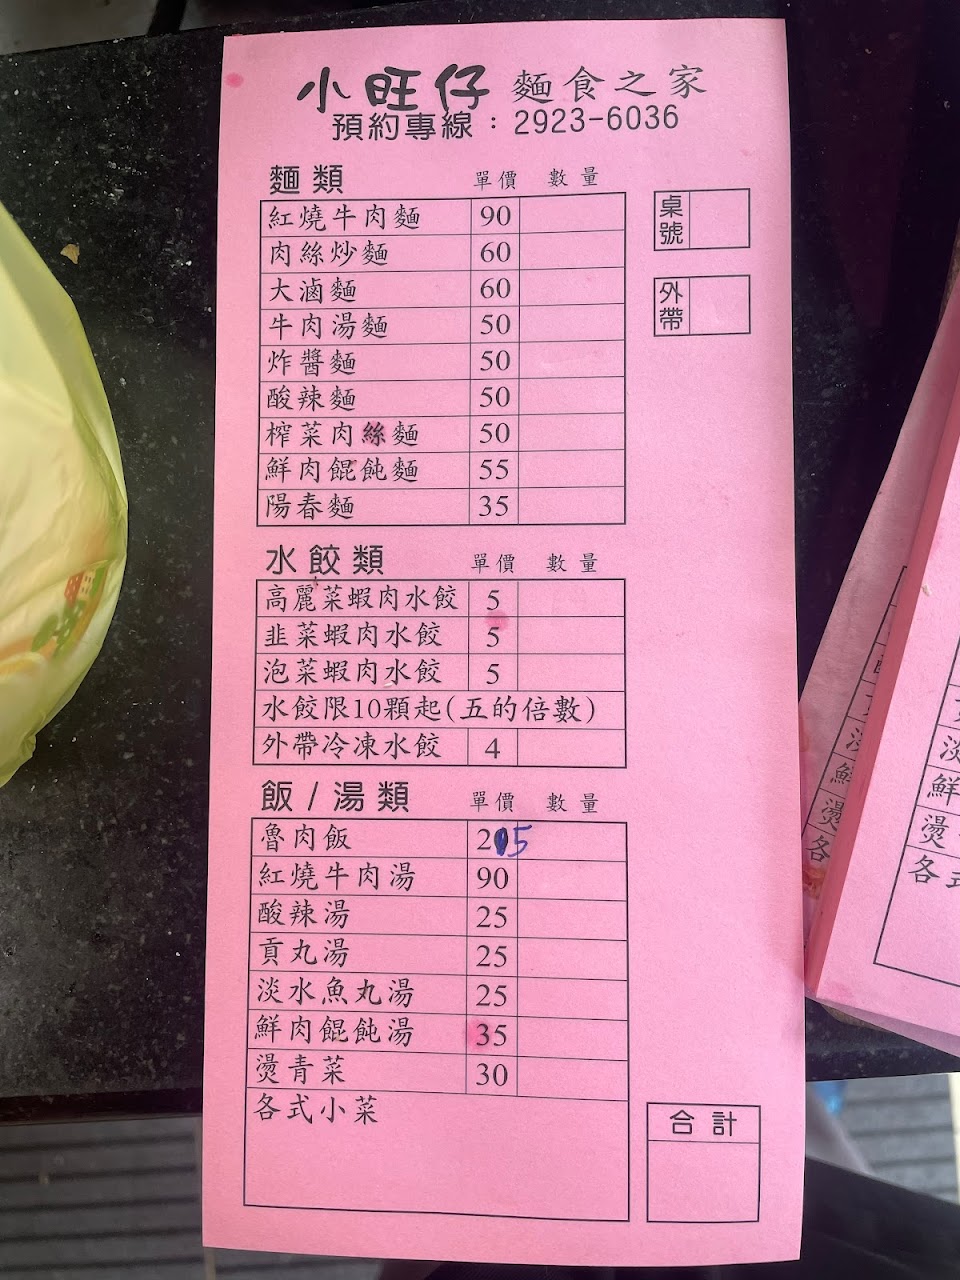 小旺仔 麵食之家
預約專線：2923-6036
麵類 單價 數量
紅燒牛肉麵 90
肉絲炒麵 60
大滷麵 60
牛肉湯麵 50
炸醬麵 50
酸辣麵 50
榨菜肉絲麵 50
鮮肉餛飩麵 55
陽春麵 35
桌號
外帶
水餃類 單價 數量
高麗菜蝦肉水餃 5
韭菜蝦肉水餃 5
泡菜蝦肉水餃 5
水餃限10顆起(五的倍數)
外帶冷凍水餃 4
飯/湯類 單價 數量
魯肉飯 25
紅燒牛肉湯 90
酸辣湯 25
貢丸湯 25
淡水魚丸湯 25
鮮肉餛飩湯 35
燙青菜 30
各式小菜
合計
淡
鮮
燙
各
淡
鮮
燙
各式